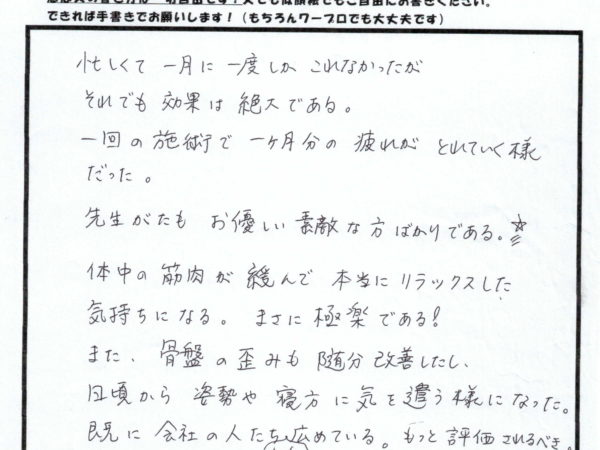 できれば手書きでお願いします！（もちろんワープロでも大丈夫です）
忙しくて 一月に 一度しか これなかったが
それでも 効果は 絶大である。
一回の 施術で 一ヶ月分の 疲れが とれていく様
だった。
先生がたも お優しい 素敵な方 ばかりである。☆
体中の 筋肉が 緩んで 本当に リラックスした
気持ちになる。まさに 極楽である！
また、骨盤の 歪みも 随分 改善したし、
日頃から 姿勢や 寝方に 気を 遣う様になった。
既に 会社の人たち 広めている。もっと 評価されるべき。